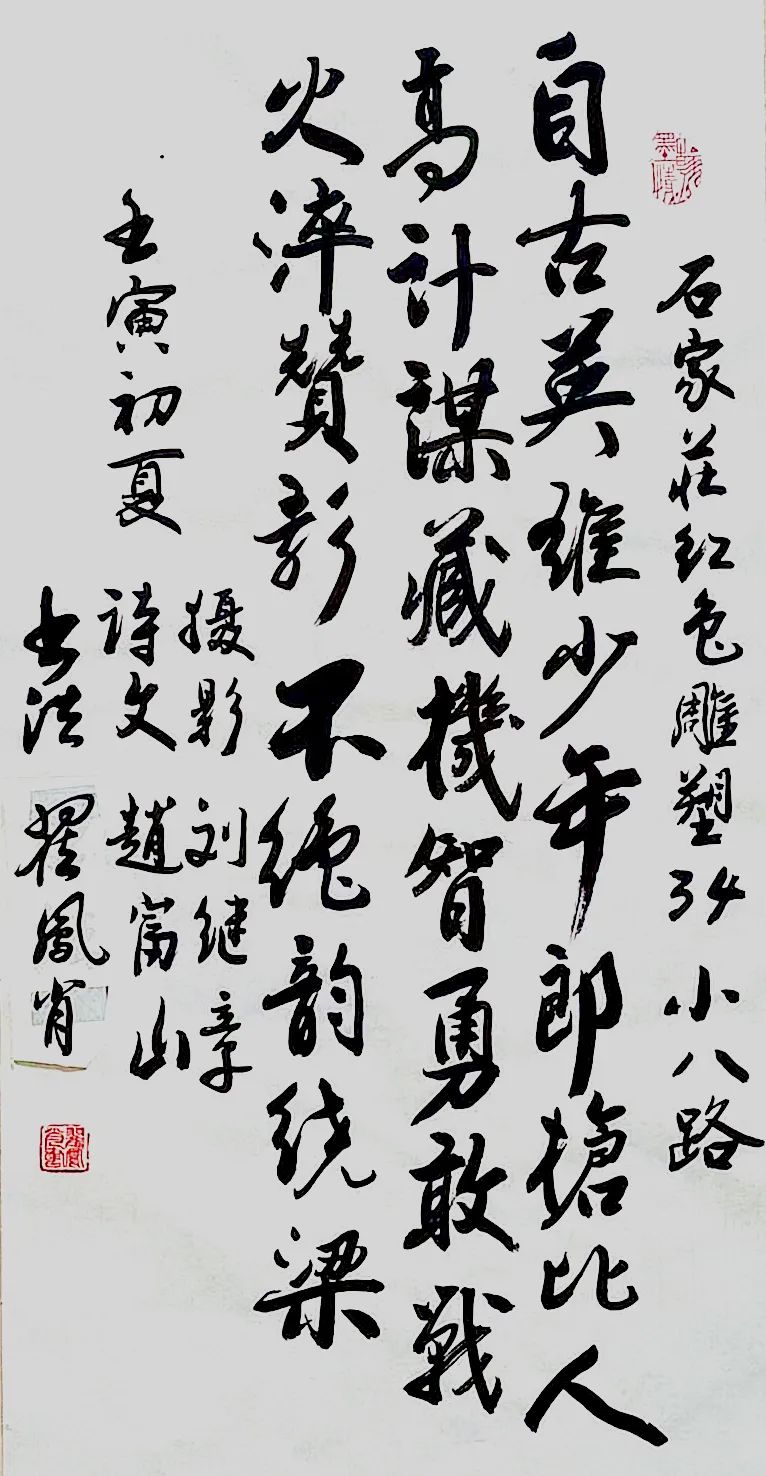 石家莊红色雕塑34 小八路
自古英雄少年郎槍比人
高计謀藏機智勇敢戰
火淬贊彰不绝韵绕梁
壬寅初夏
摄影 刘继章
诗文 趙富山
书法 翟鳳肖